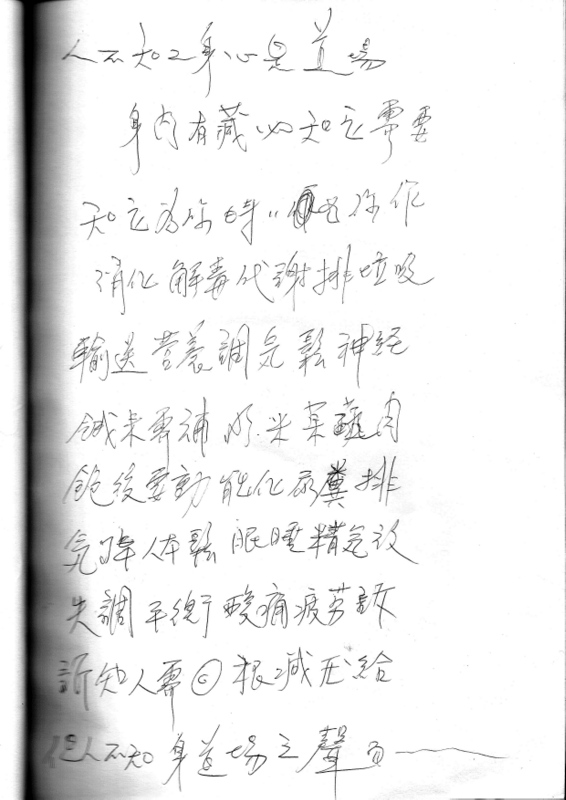 人不知之身心是道場
身內有藏必知它需要
知它為你時時作
消化解毒代謝排垃圾
輸送营養調気鬆神経
餓來需補水米菜蔬肉
飽後要動能化尿糞排
気降人体鬆眠睡精気放
失調平衡酸痛疲劳
訴知人需根减无給
但人不知身道場之聲